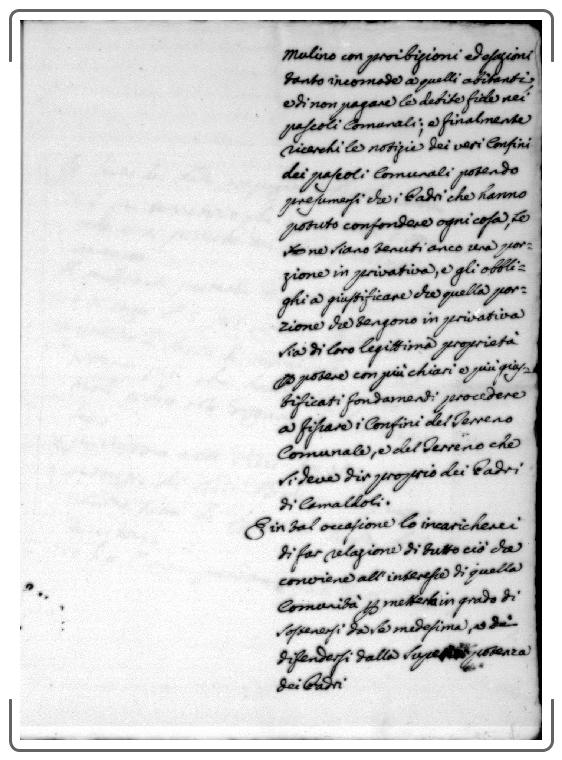 Mulino con proibizioni ed esazioni
tanto incomode a quelli abitanti,
e di non pagare le debite fide nei
pascoli Comunali; e finalmente
ricerchi le notizie dei veri Confini
dei pascoli Comunali potendo
presumersi che i Padri che hanno
potuto confondere ogni cosa, se
ne siano tenuti anco una por=
zione in privativa, e gli obbli=
ghi a giustificare che quella por=
zione che tengono in privativa
sia di loro legittima proprietà
p potere con più chiari e più gius=
tificati fondamenti procedere
a fissare i Confini del Terreno
Comunale, e del Terreno che
si deve dir proprio dei Padri
di Camaldoli.
E in tal occasione lo incaricherei
di far relazione di tutto ciò che
conviene all'interesse di quella
Comunità p metterla in grado di
sostenersi da se medesima, e di
difendersi dalla superpotenza
dei Padri